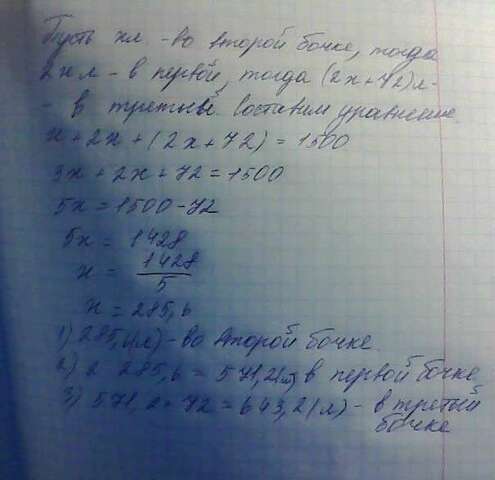 Пусть хл -во второй бочке, тогда
2х л - в первой, тогда (2х+72)л-
- в третьей. Составим уравнение.
х + 2х + (2х + 72) = 1500
3х + 2х + 72 = 1500
5х = 1500 - 72
5х = 1428
х = 1428/5
х = 285,6
1) 285,6(л) - во второй бочке.
2) 2 285,6 = 571,2(л) в первой бочке
3) 571,2 + 72 = 643,2 (л) - в третьй
бочке